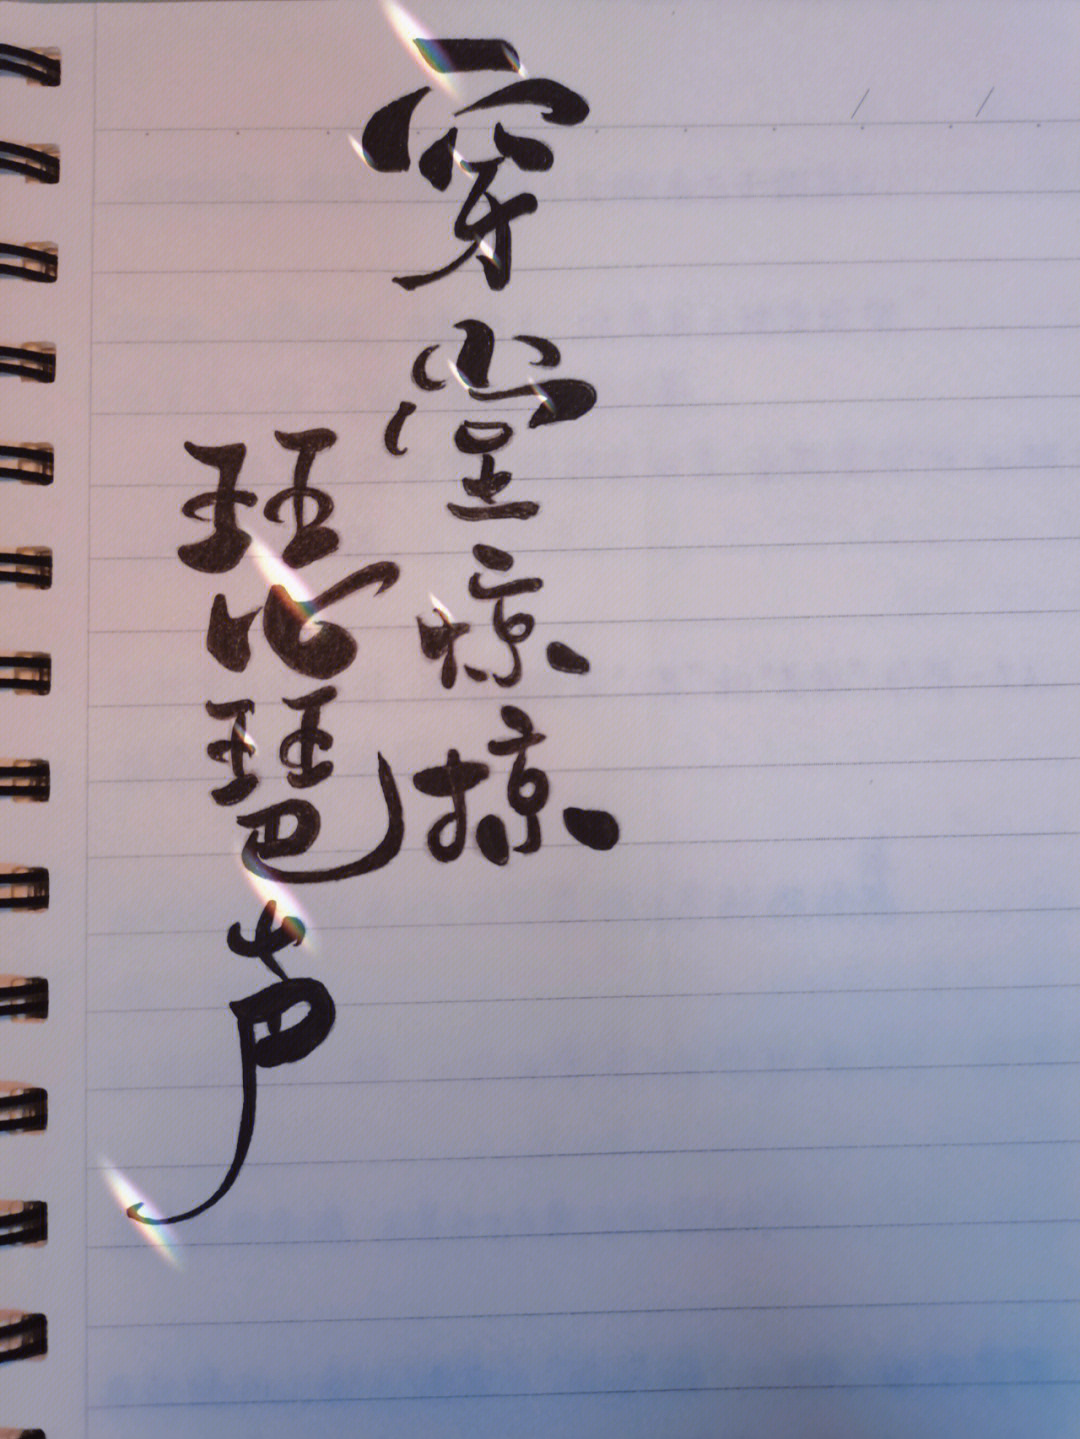 穿堂惊掠
琵琶声